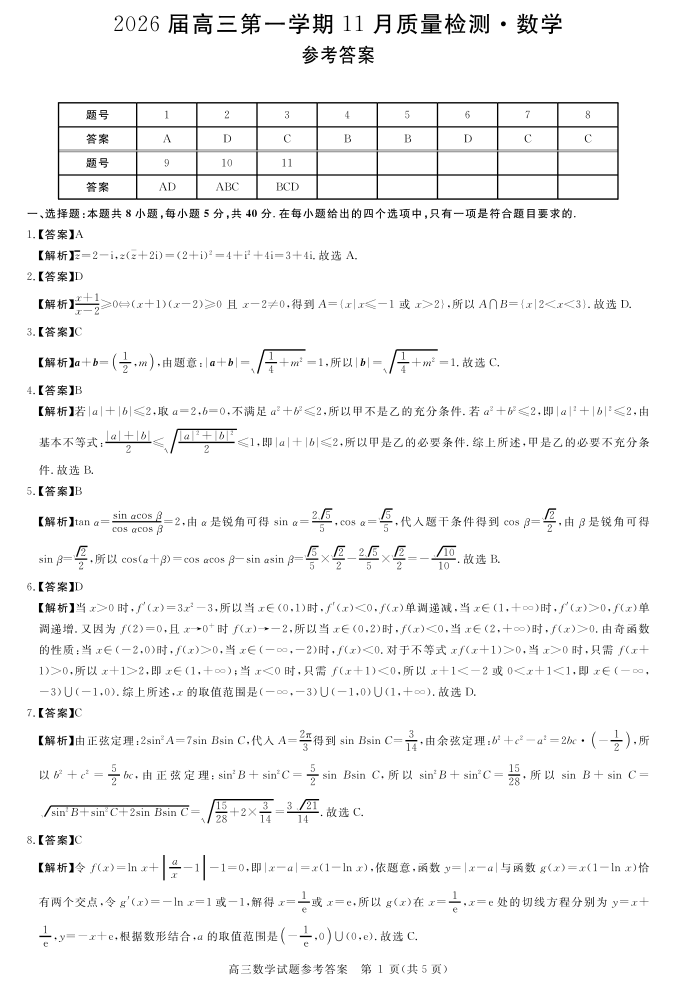 2026 届高三第一学期 11 月质量检测·数学
参考答案
题号 1 2 3 4 5 6 7 8
答案 A D C B B D C C
题号 9 10 11
答案 AD ABC BCD
一、选择题:本题共 8 小题,每小题 5 分,共 40 分. 在每小题给出的四个选项中,只有一项是符合题目要求的.
1.【答案】A
【解析】z̅=2-i,z(z̅+2i)=(2+i)²=4+i²+4i=3+4i. 故选 A.
2.【答案】D
【解析】(x+1)/(x-2)≥0⇔(x+1)(x-2)≥0 且 x-2≠0,得到 A={x|x≤-1 或 x>2},所以 A∩B={x|2<x<3}. 故选 D.
3.【答案】C
【解析】a+b=(1/2,m),由题意:|a+b|=√(1/4+m²)=1,所以|b|=√(1/4+m²)=1. 故选 C.
4.【答案】B
【解析】若|a|+|b|≤2,取 a=2,b=0,不满足 a²+b²≤2,所以甲不是乙的充分条件. 若 a²+b²≤2,即|a|²+|b|²≤2,由
基本不等式:(|a|+|b|)/2≤√((|a|²+|b|²)/2)≤1,即|a|+|b|≤2,所以甲是乙的必要条件. 综上所述,甲是乙的必要不充分条
件. 故选 B.
5.【答案】B
【解析】tan α=(sin αcos β)/(cos αcos β)=2,由 α 是锐角可得 sin α=2√5/5,cos α=√5/5,代入题干条件得到 cos β=√2/2,由 β 是锐角可得
sin β=√2/2,所以 cos(α+β)=cos αcos β-sin αsin β=√5/5×√2/2-2√5/5×√2/2=-√10/10. 故选 B.
6.【答案】D
【解析】当 x>0 时,f′(x)=3x²-3,所以当 x∈(0,1)时,f′(x)<0,f(x)单调递减,当 x∈(1,+∞)时,f′(x)>0,f(x)单
调递增. 又因为 f(2)=0,且 x→0⁺时 f(x)→-2,所以当 x∈(0,2)时,f(x)<0,当 x∈(2,+∞)时,f(x)>0. 由奇函数
的性质:当 x∈(-2,0)时,f(x)>0,当 x∈(-∞,-2)时,f(x)<0. 对于不等式 xf(x+1)>0,当 x>0 时,只需 f(x+
1)>0,所以 x+1>2,即 x∈(1,+∞);当 x<0 时,只需 f(x+1)<0,所以 x+1<-2 或 0<x+1<1,即 x∈(-∞,
-3)∪(-1,0). 综上所述,x 的取值范围是(-∞,-3)∪(-1,0)∪(1,+∞). 故选 D.
7.【答案】C
【解析】由正弦定理:2sin²A=7sin Bsin C,代入 A=2π/3得到 sin Bsin C=3/14,由余弦定理:b²+c²-a²=2bc·(-1/2),所
以 b²+c²=5/2 bc,由正弦定理:sin²B+sin²C=5/2 sin Bsin C,所以 sin²B+sin²C=15/28,所以 sin B+sin C=
√(sin²B+sin²C+2sin Bsin C)=√(15/28+2×3/14)=3√21/14. 故选 C.
8.【答案】C
【解析】令 f(x)=ln x+|a/x-1|-1=0,即|x-a|=x(1-ln x),依题意,函数 y=|x-a|与函数 g(x)=x(1-ln x)恰
有两个交点,令 g′(x)=-ln x=1 或-1,解得 x=1/e或 x=e,所以 g(x)在 x=1/e,x=e 处的切线方程分别为 y=x+
1/e,y=-x+e,根据数形结合,a 的取值范围是(-1/e,0)∪(0,e). 故选 C.
高三数学试题参考答案 第 1 页(共 5 页)